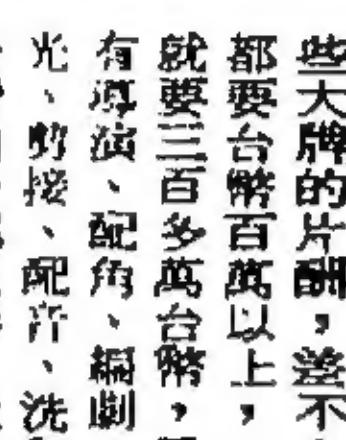 些大牌的片酬，差不
都要台幣百萬以上，
就要三百多萬台幣，
有導演、配角、編劇
光、剪接、配音、洗